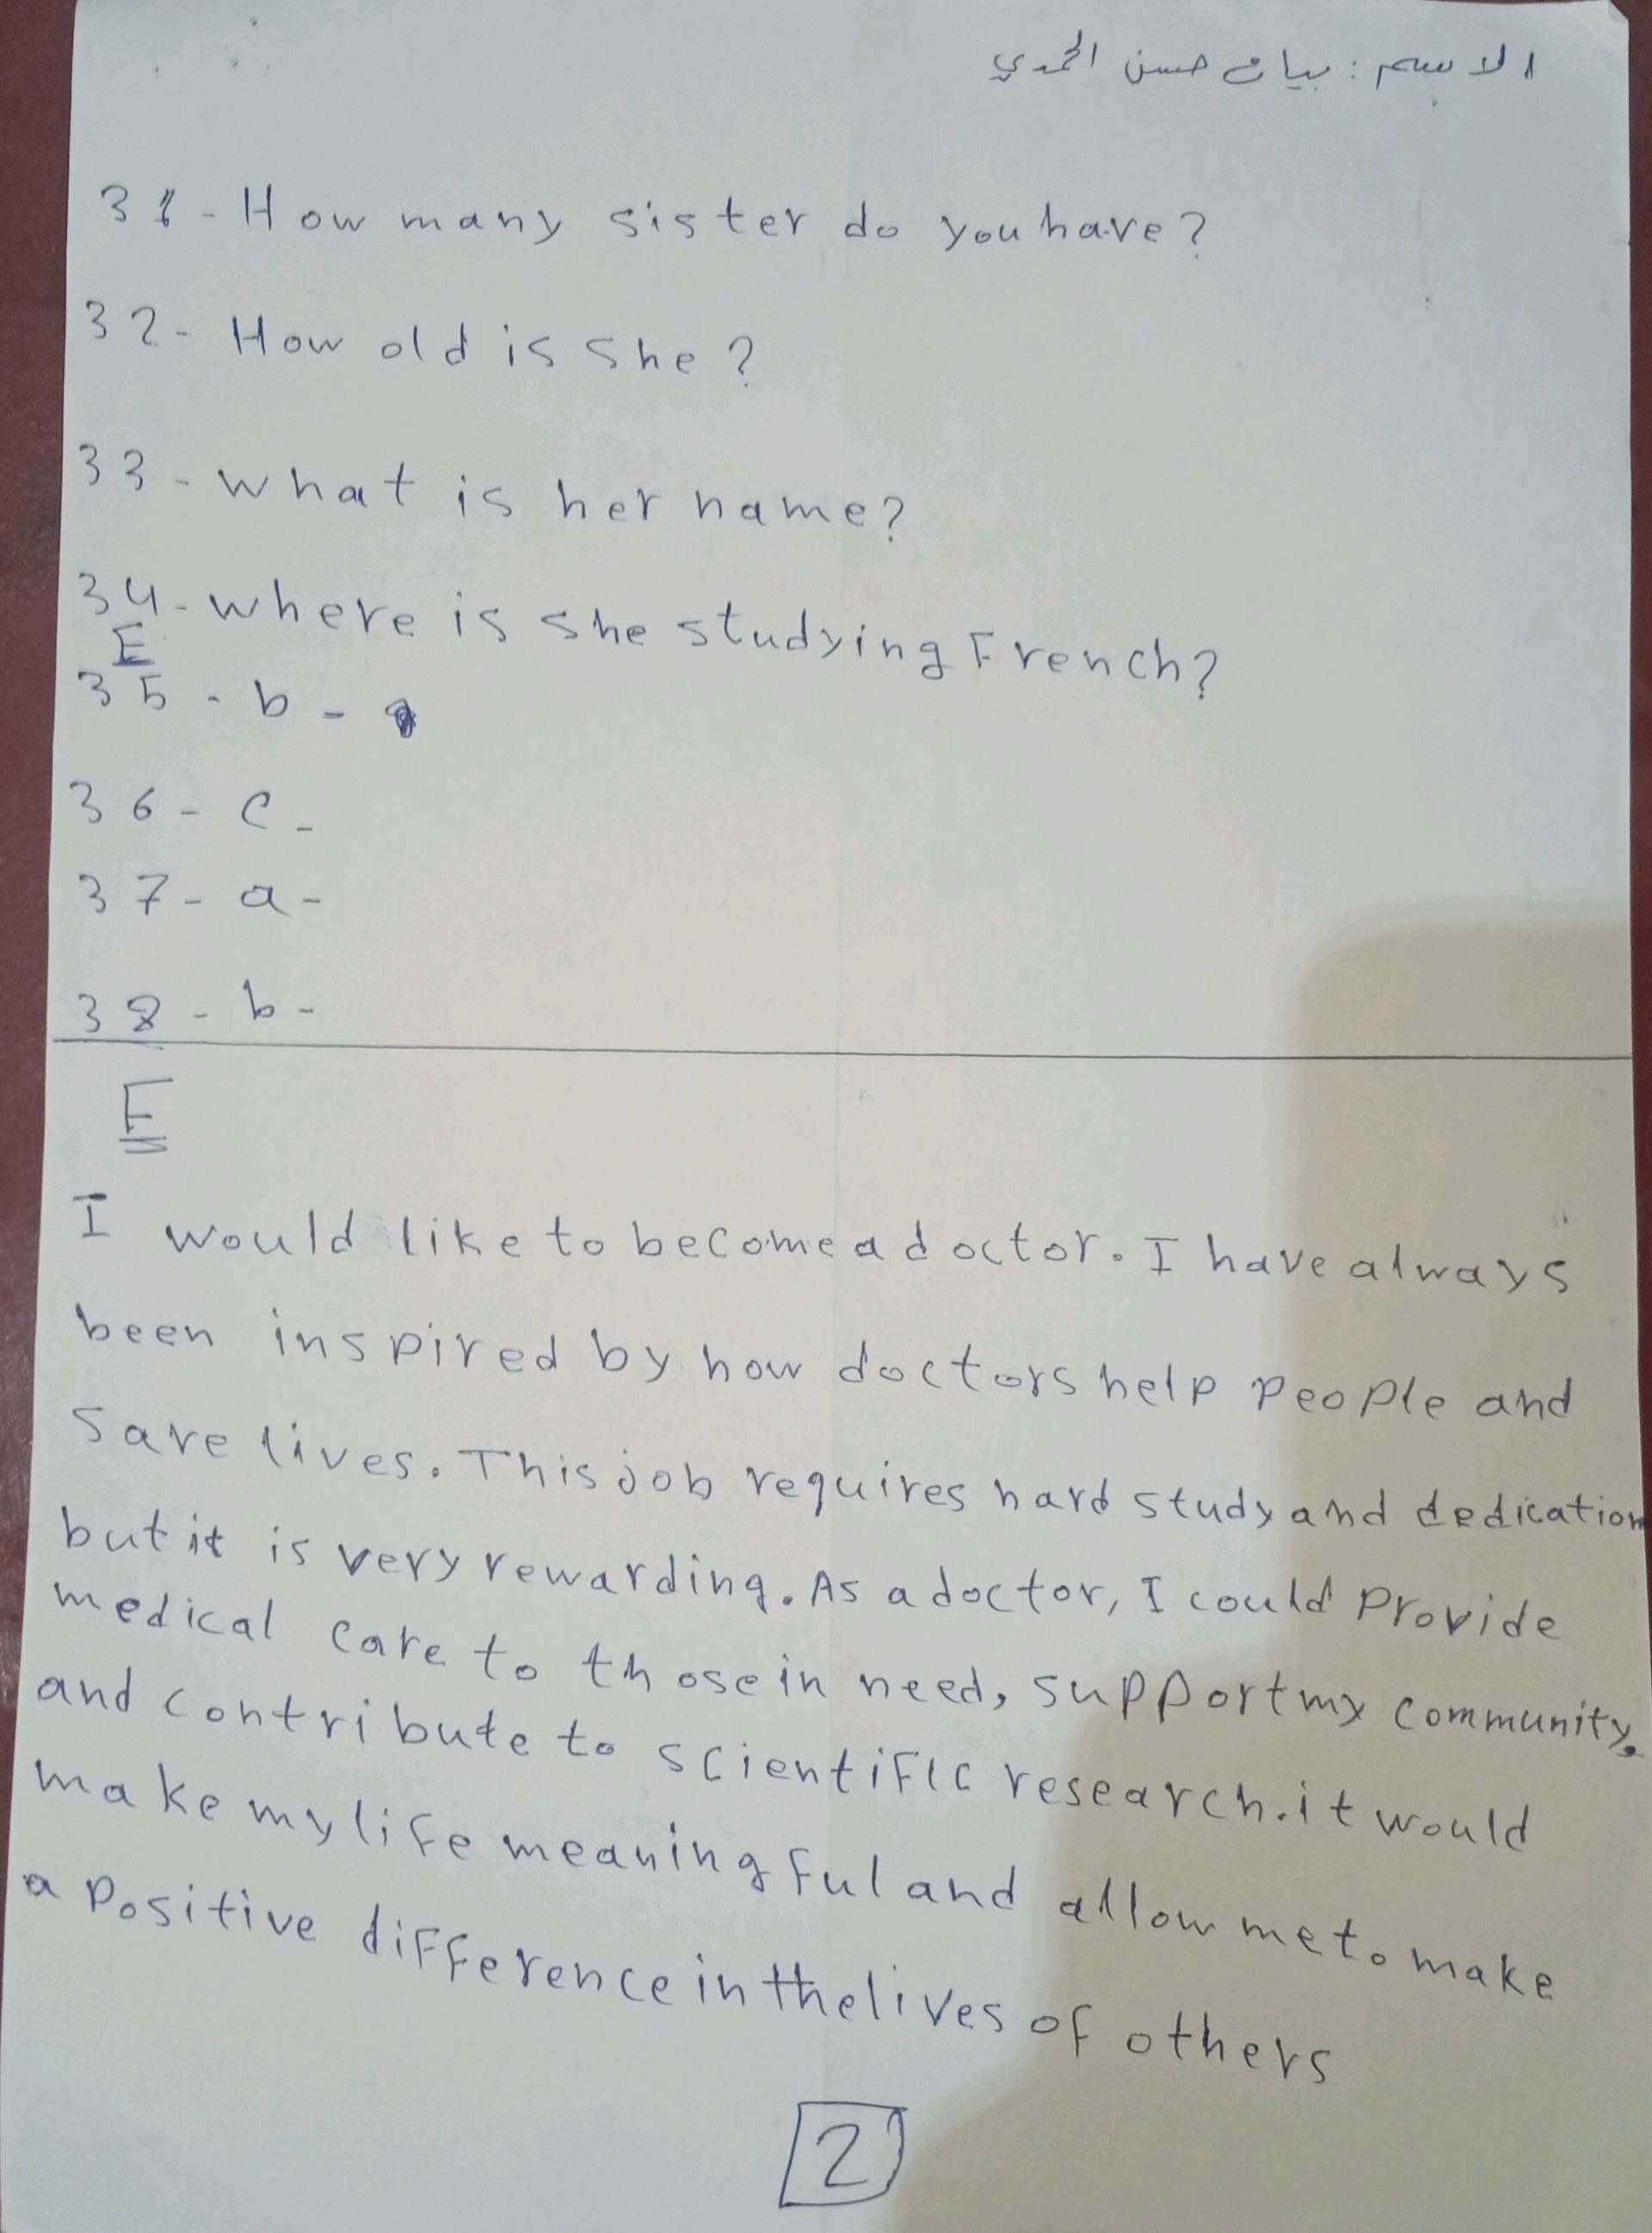 الاسم: بيان حسن الحمدي
31- How many sister do you have?
32- How old is she?
33- what is her name?
34- where is she studying French?
E
35- b -
36- c -
37- a -
38- b -
F
I would like to become a doctor. I have always
been inspired by how doctors help people and
save lives. This job requires hard study and dedication
but it is very rewarding. As a doctor, I could provide
medical care to those in need, support my community,
and contribute to scientific research. it would
make my life meaningful and allow me to make
a positive difference in the lives of others
2